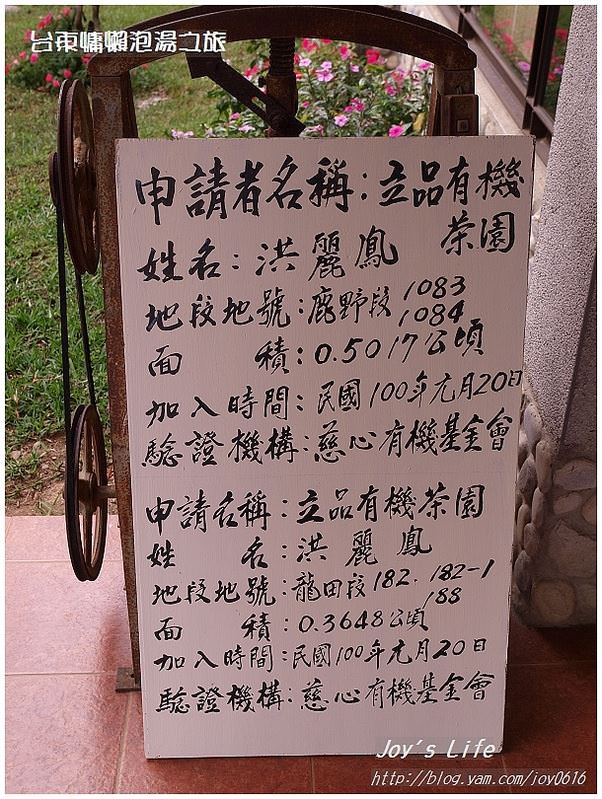 台東慵懶泡湯之旅
申請者名稱:立品有機
茶園
姓名:洪麗鳳
地段地號:鹿野段1083
1084
面積:0.5017公頃
加入時間:民國100年元月20日
驗證機構:慈心有機基金會
申請名稱:立品有機茶園
姓名:洪麗鳳
地段地號:龍田段182.182-1
188
面積:0.3648公頃
加入時間:民國100年元月20日
驗證機構:慈心有機基金會
Joy's Life
http://blog.yam.com/joy0616